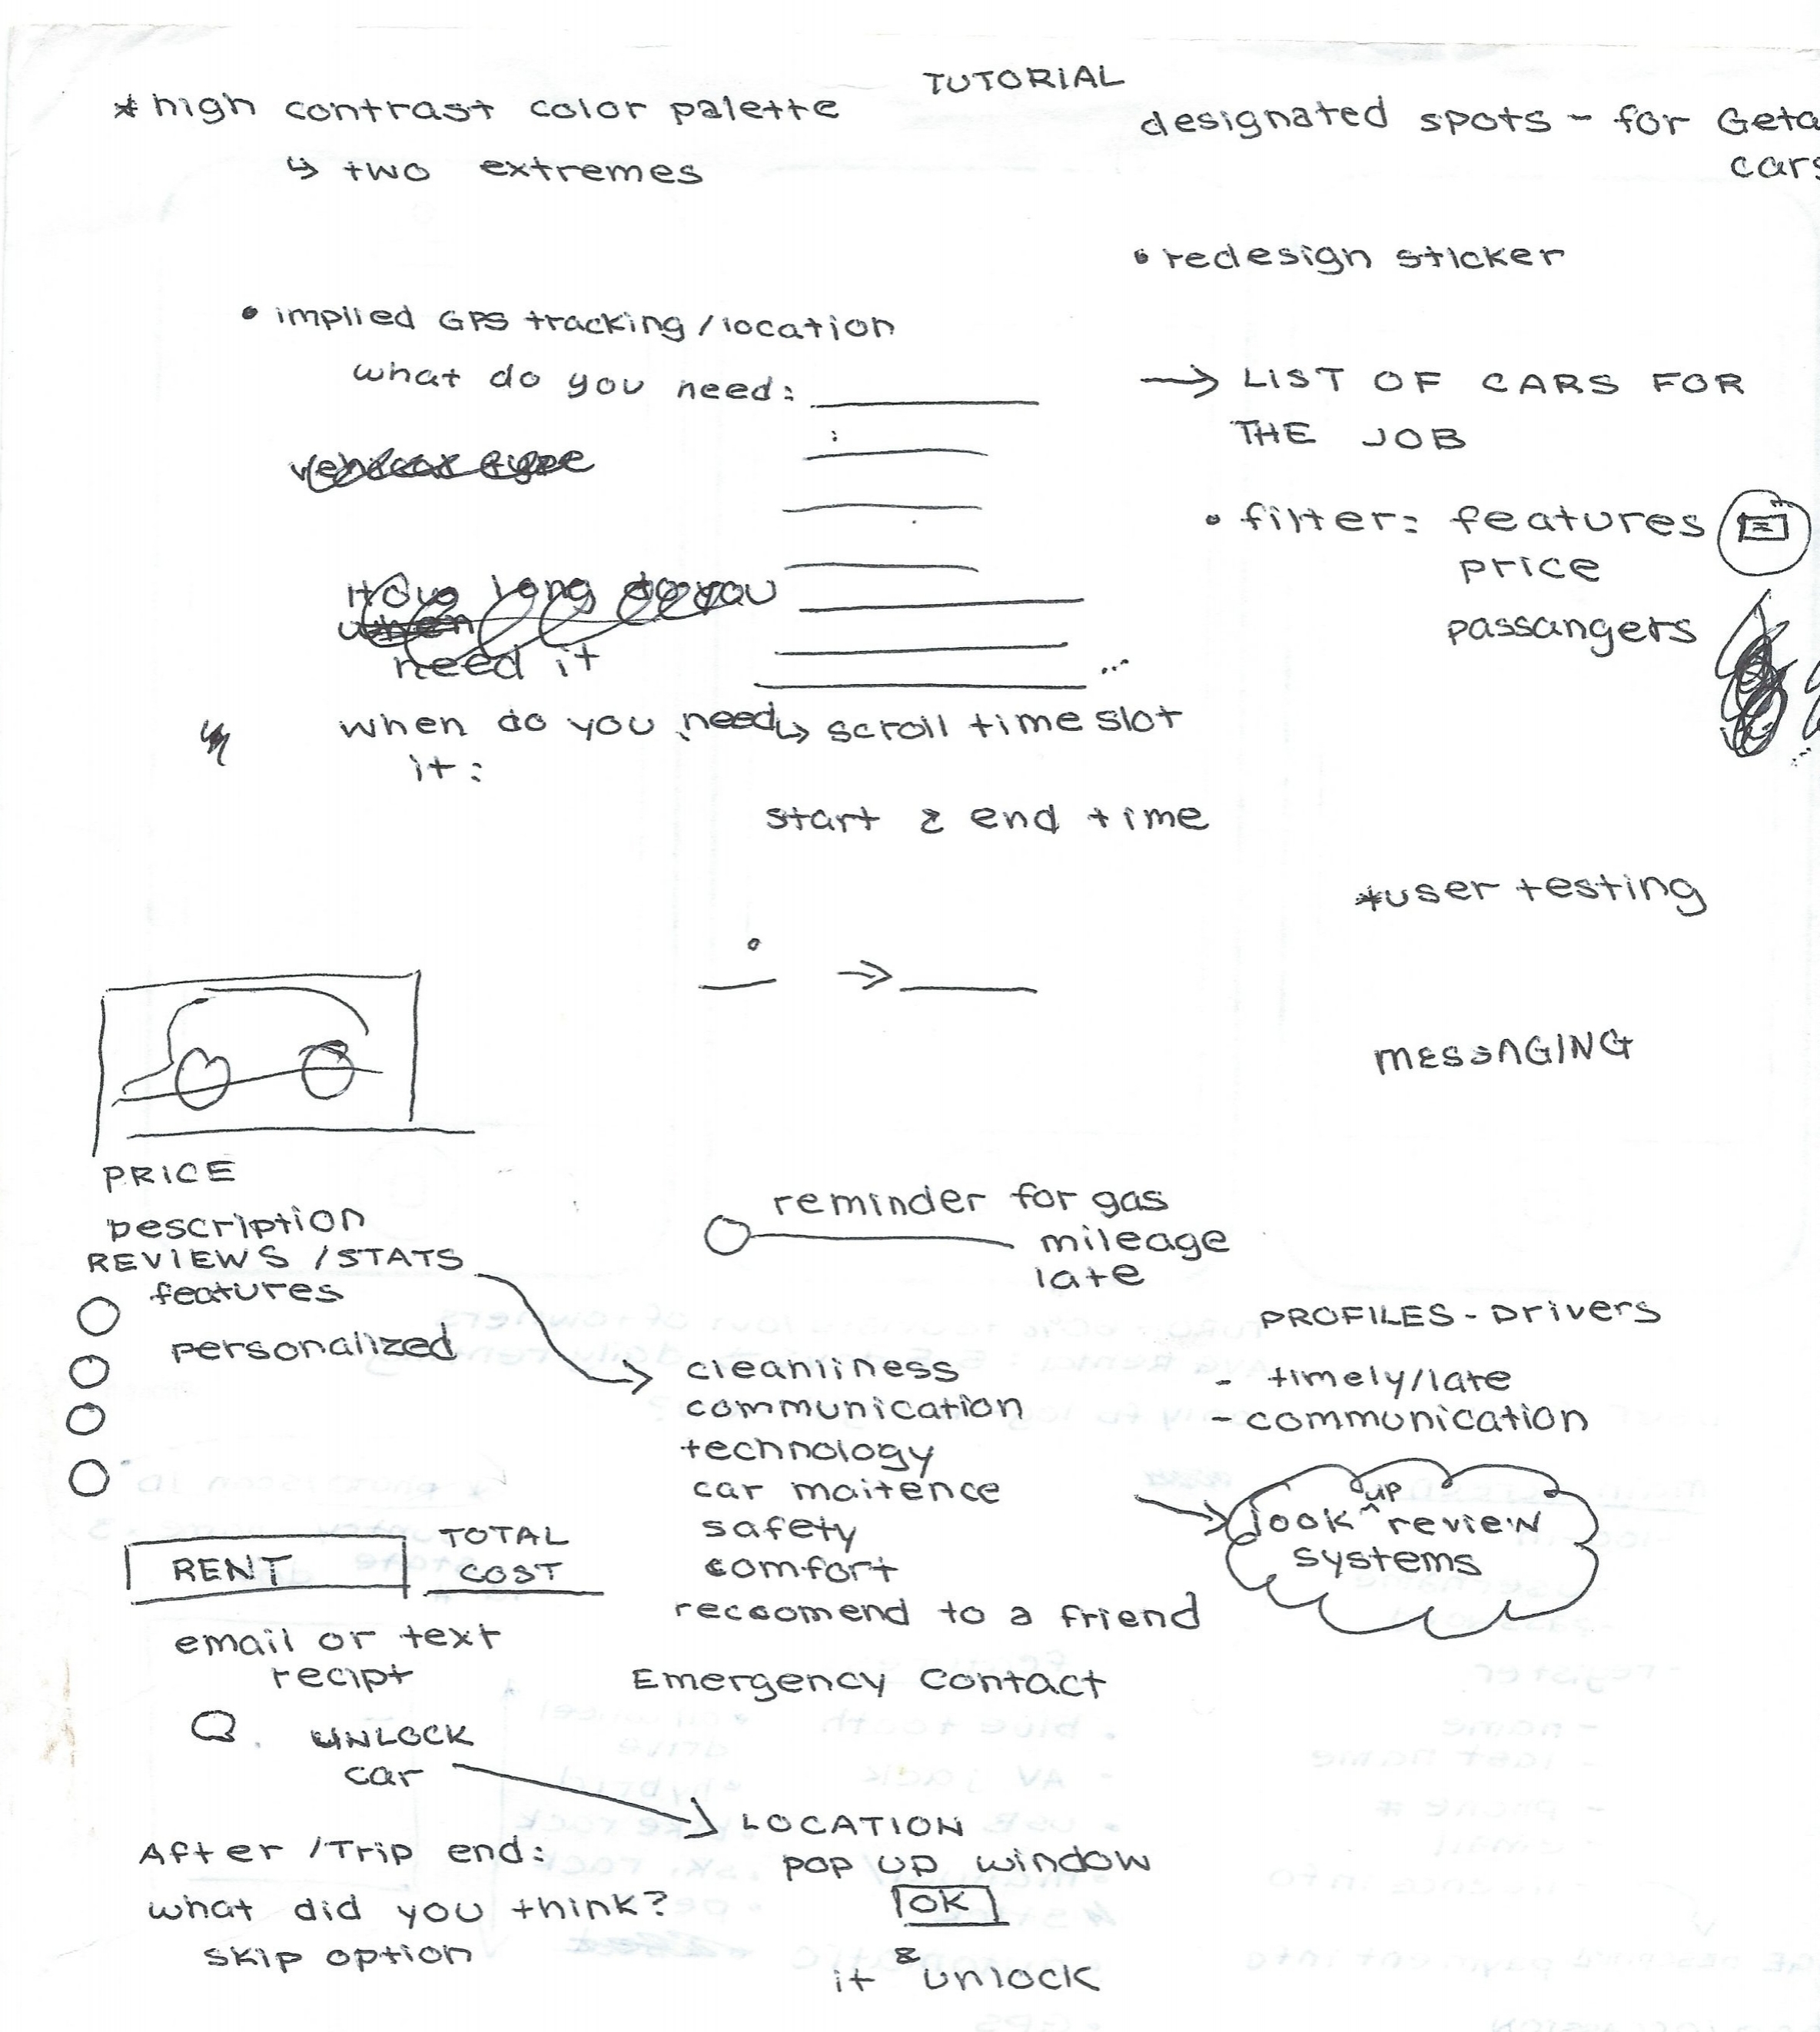 TUTORIAL
* high contrast color palette
↳ two extremes
designated spots - for Geta
cars
• redesign sticker
• implied GPS tracking / location
what do you need:
→ LIST OF CARS FOR
THE JOB
• filter: features
price
passangers
How long do you
when
need it
when do you need
it:
↳ scroll time slot
start & end time
*user testing
MESSAGING
PRICE
Description
REVIEWS / STATS
features
personalized
reminder for gas
mileage
late
PROFILES - Drivers
- timely/late
- communication
cleanliness
communication
technology
car maitence
safety
comfort
reccomend to a friend
look ^up review
systems
RENT
TOTAL
COST
email or text
recipt
Emergency Contact
UNLOCK
car
LOCATION
POP UP window
OK
it & unlock
After / Trip end:
what did you think?
skip option